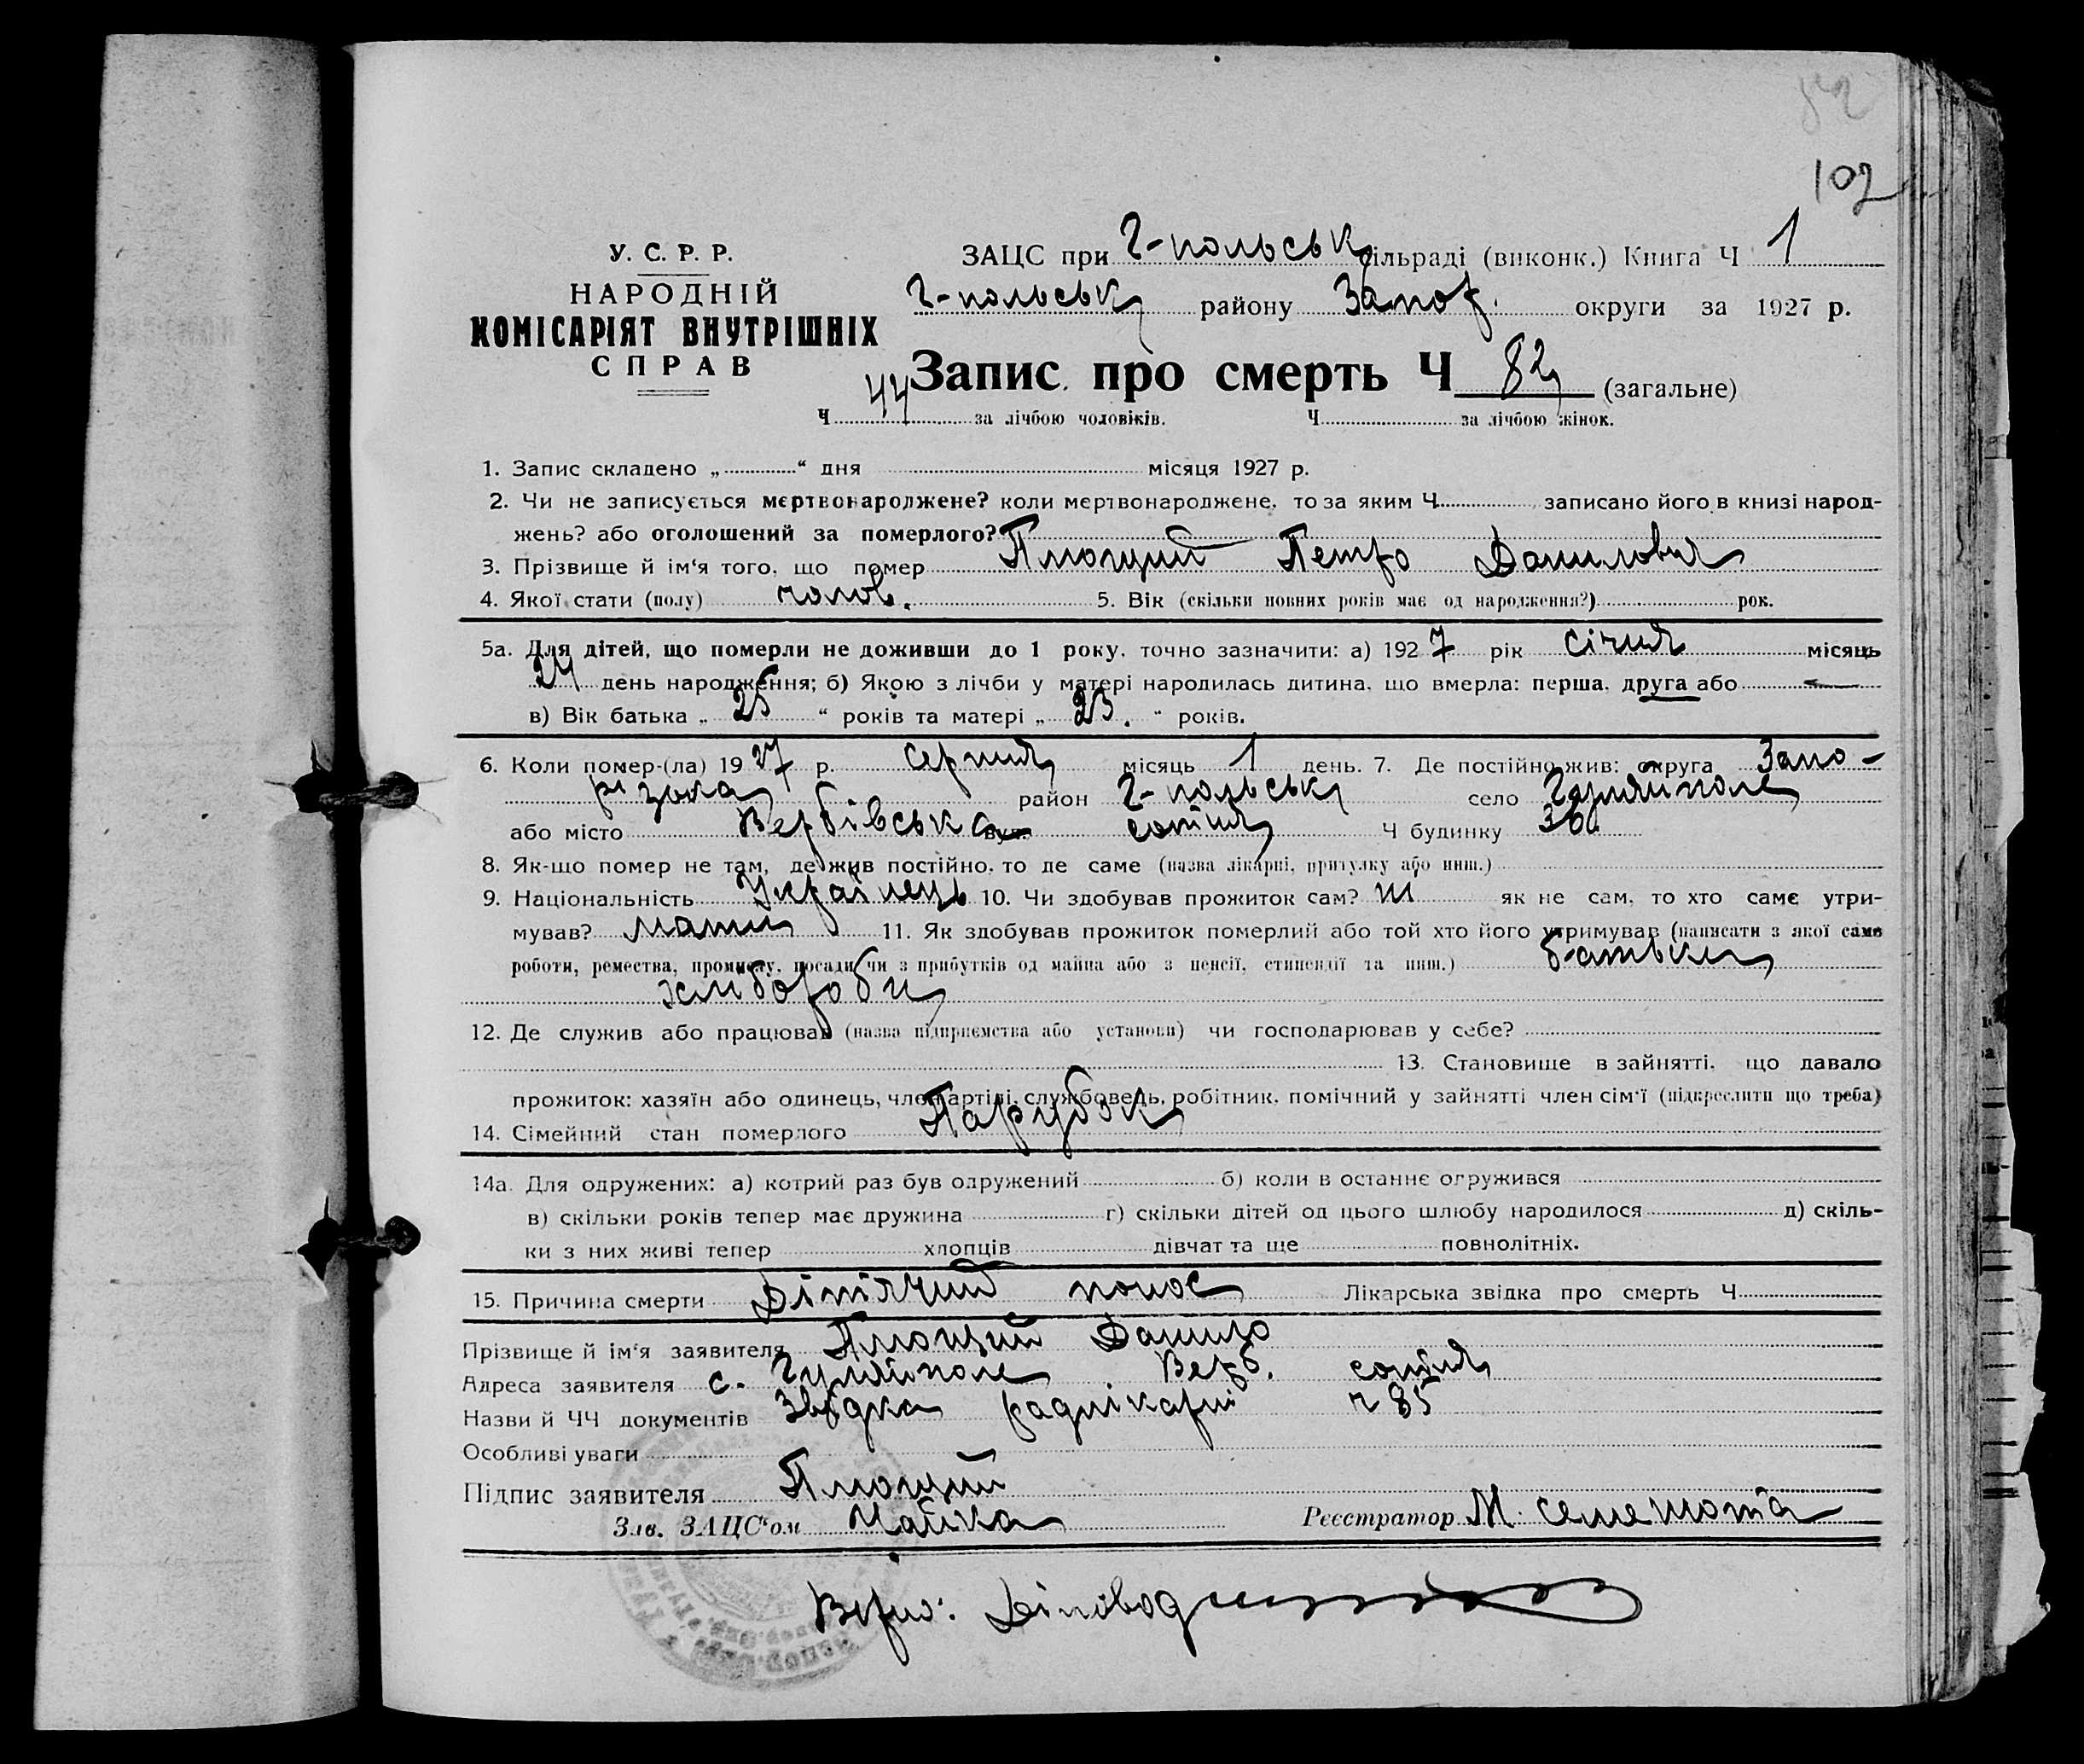 102
У. С. Р. Р.
НАРОДНІЙ
КОМІСАРІЯТ ВНУТРІШНІХ
СПРАВ
ЗАЦС при Г-польськ сільраді (виконк.) Книга Ч 1
Г-польськ району Запор. округи за 1927 р.
Запис про смерть Ч 82 (загальне)
Ч 44 за лічбою чоловіків. Ч за лічбою жінок.
1. Запис складено „ “ дня місяця 1927 р.
2. Чи не записується мертвонароджене? коли мертвонароджене, то за яким Ч записано його в книзі народ-
жень? або оголошений за померлого?
3. Прізвище й ім‘я того, що помер Плющий Петро Данилович
4. Якої стати (полу) чолов. 5. Вік (скільки повних років має од народження?) рок.
5а. Для дітей, що померли не доживши до 1 року, точно зазначити: а) 1927 рік січня місяць
24 день народження; б) Якою з лічби у матері народилась дитина, що вмерла: перша, друга або —
в) Вік батька „ 25 “ років та матері „ 23. “ років.
6. Коли помер-(ла) 1927 р. серпня місяць 1 день. 7. Де постійно жив: округа Запо-
різька район Г-польськ село Гуляйполе
або місто Вербівська вул. сотня Ч будинку 36
8. Як-що помер не там, де жив постійно, то де саме (назва лікарні, притулку або инш.)
9. Національність Українець 10. Чи здобував прожиток сам? ні як не сам, то хто саме утри-
мував? мати 11. Як здобував прожиток померлий або той хто його утримував (написати з якої саме
роботи, ремества, промислу, посади чи з прибутків од майна або з пенсії, стипендії та инш.) батьки
хлібороби
12. Де служив або працював (назва підприємства або установи) чи господарював у себе?
13. Становище в зайнятті, що давало
прожиток: хазяїн або одинець, член артілі, службовець, робітник, помічний у зайнятті член сім‘ї (підкреслити що треба)
14. Сімейний стан померлого Парубок
14а. Для одружених: а) котрий раз був одружений б) коли в останнє одружився
в) скільки років тепер має дружина г) скільки дітей од цього шлюбу народилося д) скіль-
ки з них живі тепер хлопців дівчат та ще повнолітніх.
15. Причина смерти Дітячий понос Лікарська звідка про смерть Ч
Прізвище й ім‘я заявителя Плющий Данило
Адреса заявителя с. Гуляйполе Верб. сотня
Назви й ЧЧ документів Звідка радлікарні ч 85
Особливі уваги
Підпис заявителя Плющий
Зав. ЗАЦС‘ом Чайка Реєстратор М. Семенота
Вірно: Діловод